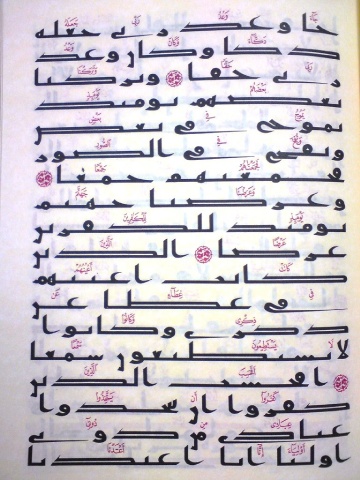 جا وعد ربي جعله
دكا وكان وعد
ربي حقا وتركنا
بعضهم يومئذ
يموج في بعض
ونفخ في الصور
فجمعنهم جمعا
وعرضنا جهنم
يومئذ للكفرين
عرضا الذين
كانت اعينهم
في غطا عن
ذكري وكانوا
لا يستطيعون سمعا
افحسب الذين
كفروا ان يتخذوا
عبادي من دوني
اوليا انا اعتدنا